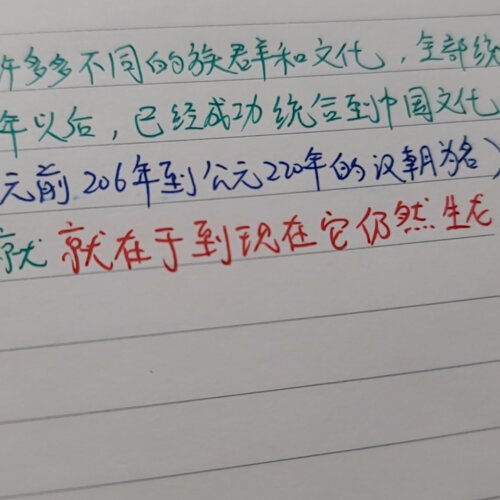 许多多不同的族君羊和文化，全部统
年以后，已经成功统合到中国文化
元前206年到公元220年的汉朝为名）
就 就在于到现在它仍然生龙